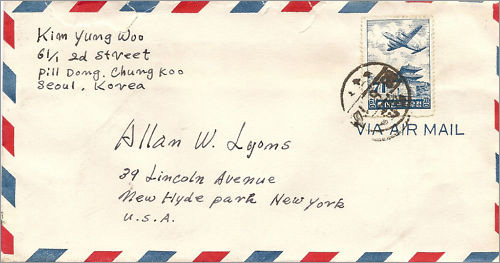 Kim Yung Woo
61/1 2d Street
Pill Dong. Chung Koo
Seoul. Korea
VIA AIR MAIL
Allan W. Lyons
39 Lincoln Avenue
New Hyde park New York
U.S.A.